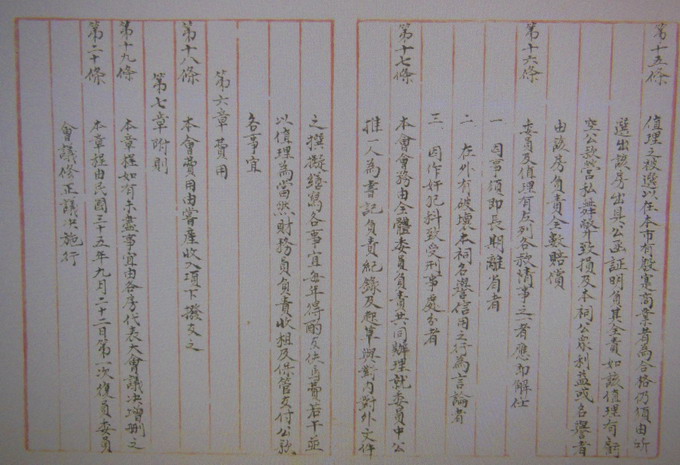 第十五條
值理之被選以在本市有殷實商業者為合格仍須由所
選出該房出具公函証明負其全責如該值理有虧
空公款營私舞弊致損及本祠公眾利益或名譽者
由該房負責全數賠償
第十六條
委員及值理有左列各款情事之一者應即解任
一 因事須即長期離省者
二 在外有破壞本祠名譽信用之行為言論者
三 因作奸犯科致受刑事處分者
第十七條
本會會務由全體委員負責共同辦理就委員中公
推一人為書記負責紀錄及起草與對內對外文件
之撰擬繕寫各事宜每年得酌支伕馬費若干並
以值理為當然財務員負責收租及保管支付公款
各事宜
第六章 費用
第十八條
本會費用由嘗產收入項下撥支之
第七章 附則
第十九條
本章程如有未盡事宜由各房代表大會議決增刪之
第二十條
本章程由民國三十五年九月二十二日第一次復員委員
會議修正議決施行